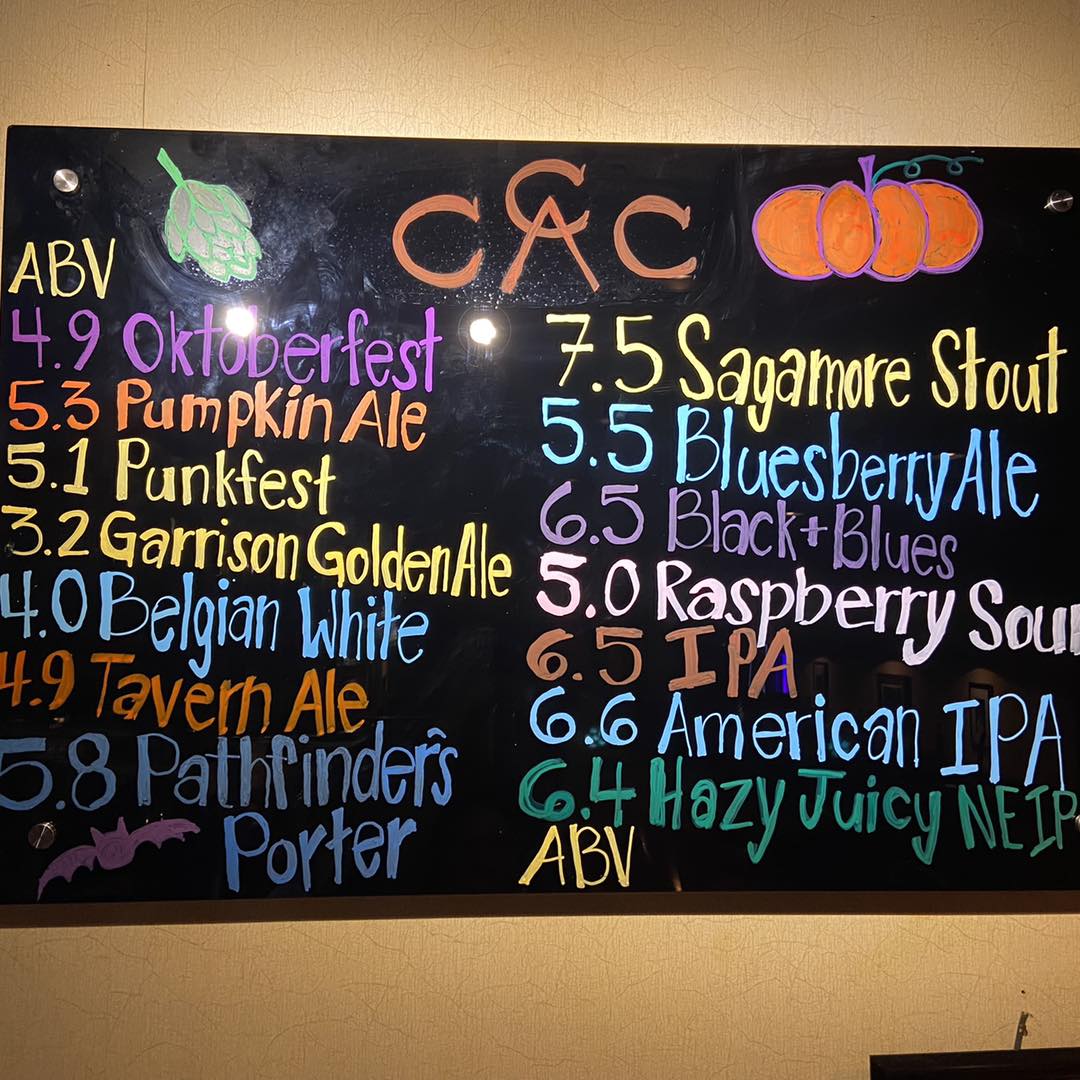 CCAC
ABV
4.9 Oktoberfest
5.3 Pumpkin Ale
5.1 Punkfest
3.2 Garrison Golden Ale
4.0 Belgian White
4.9 Tavern Ale
5.8 Pathfinder's
Porter
7.5 Sagamore Stout
5.5 Bluesberry Ale
6.5 Black + Blues
5.0 Raspberry Sour
6.5 IPA
6.6 American IPA
6.4 Hazy Juicy NEIP
ABV